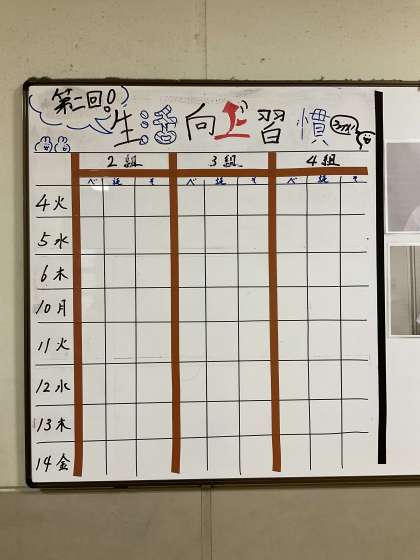 第二回!!
生活向上習慣
2組 3組 4組
べ 純 そ べ 純 そ べ 純 そ
4火
5水
6木
10月
11火
12水
13木
14金